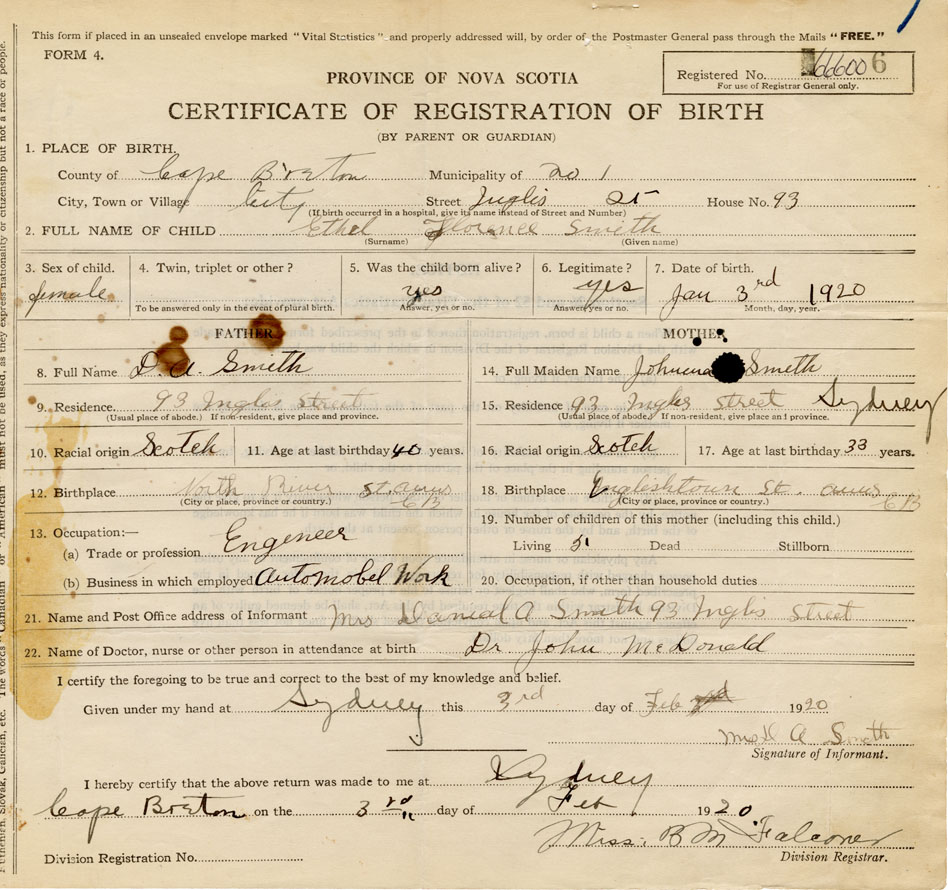 This form if placed in an unsealed envelope marked "Vital Statistics" and properly addressed will, by order of the Postmaster General pass through the Mails "FREE."
FORM 4.
PROVINCE OF NOVA SCOTIA
Registered No. 666006
For use of Registrar General only.
CERTIFICATE OF REGISTRATION OF BIRTH
(BY PARENT OR GUARDIAN)
1. PLACE OF BIRTH.
County of Cape Breton Municipality of no 1
City, Town or Village City Street Inglis St House No. 93
(If birth occurred in a hospital, give its name instead of Street and Number)
2. FULL NAME OF CHILD Ethel Florence Smith
(Surname) (Given name)
3. Sex of child. female
4. Twin, triplet or other?
To be answered only in the event of plural birth.
5. Was the child born alive? yes
Answer, yes or no.
6. Legitimate? yes
Answer, yes or no.
7. Date of birth. Jan 3rd 1920
Month, day, year.
FATHER
8. Full Name D. A. Smith
9. Residence 93 Inglis Street
(Usual place of abode.) If non-resident, give place and province.
10. Racial origin Scotch 11. Age at last birthday 40 years.
12. Birthplace North River St. Anns CB
(City or place, province or country.)
13. Occupation:—
(a) Trade or profession Engeneer
(b) Business in which employed Automobel Work
MOTHER
14. Full Maiden Name Smith
15. Residence 93 Ingles Street Sydney
(Usual place of abode.) If non-resident, give place and province.
16. Racial origin Scotch 17. Age at last birthday 33 years.
18. Birthplace Englishtown St. Anns CB
(City or place, province or country.)
19. Number of children of this mother (including this child.)
Living 5 Dead Stillborn
20. Occupation, if other than household duties
21. Name and Post Office address of Informant Mrs Danial A Smith 93 Inglis Street
22. Name of Doctor, nurse or other person in attendance at birth Dr John McDonald
I certify the foregoing to be true and correct to the best of my knowledge and belief.
Given under my hand at Sydney this 3rd day of Feb 1920
Mrs D A Smith
Signature of Informant.
I hereby certify that the above return was made to me at Sydney
Cape Breton on the 3rd day of Feb 1920.
Miss. B M Falconer
Division Registrar.
Division Registration No.
must not be used, as they express nationality or citizenship but not a race or people.
The words "Canadian" or "American"
Slovak, Galician, etc.